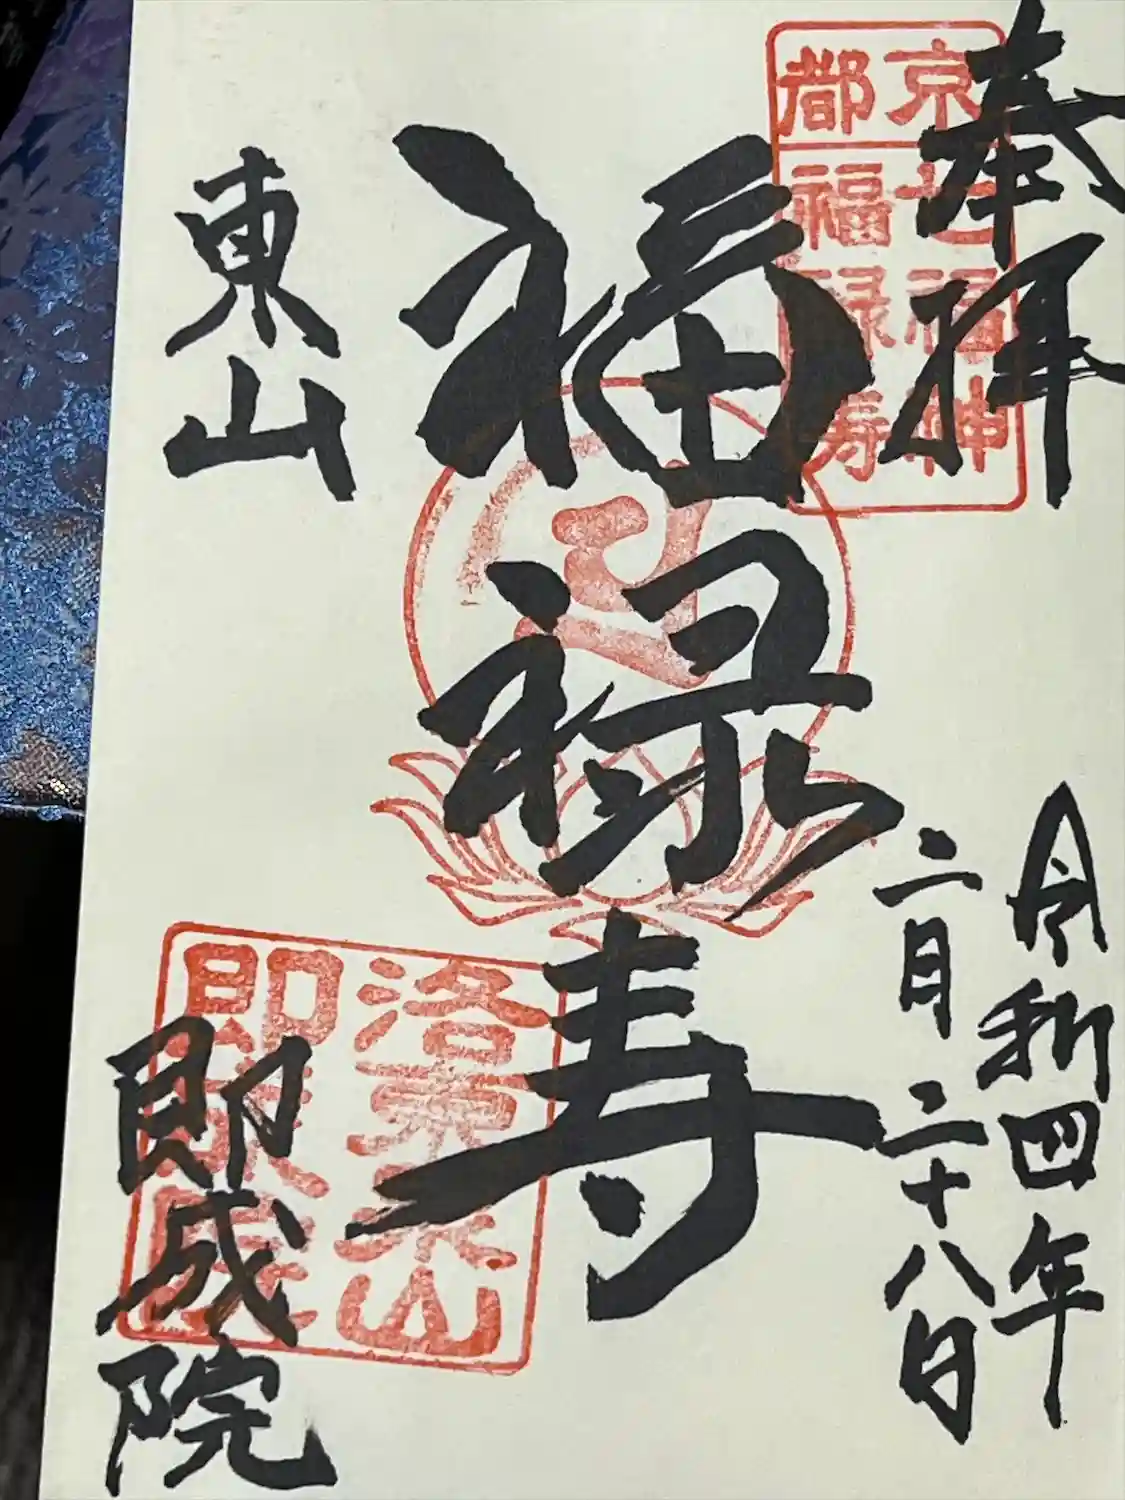 奉拝
令和四年
二月二十八日
京都
七福神
福禄寿
福禄寿
洛東泉山
即成院
東山
即成院